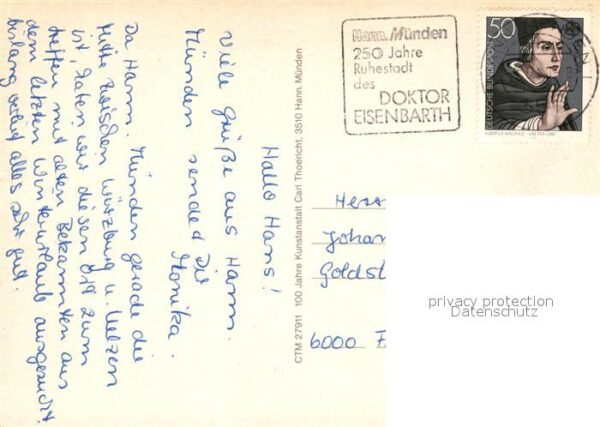 Hallo Hans!
Viele Grüße aus Hann.
Münden sendet Dir
Monika.
Da Hann. Münden gerade die
Mitte zwischen Würzburg u. Uelzen
ist, haben wir diesen Ort zum
treffen mit alten Bekannten aus
dem letzten Winterurlaub ausgesucht.
bislang verlief alles sehr gut.
CTM 27911 100 Jahre Kunstanstalt Carl Thoericht, 3510 Hann. Münden
Hann. Münden
250 Jahre
Ruhestadt
des
DOKTOR
EISENBARTH
50
DEUTSCHE BUNDESPOST
ALBERTUS MAGNUS
Herr
Johan
Goldst
6000 F
privacy protection
Datenschutz